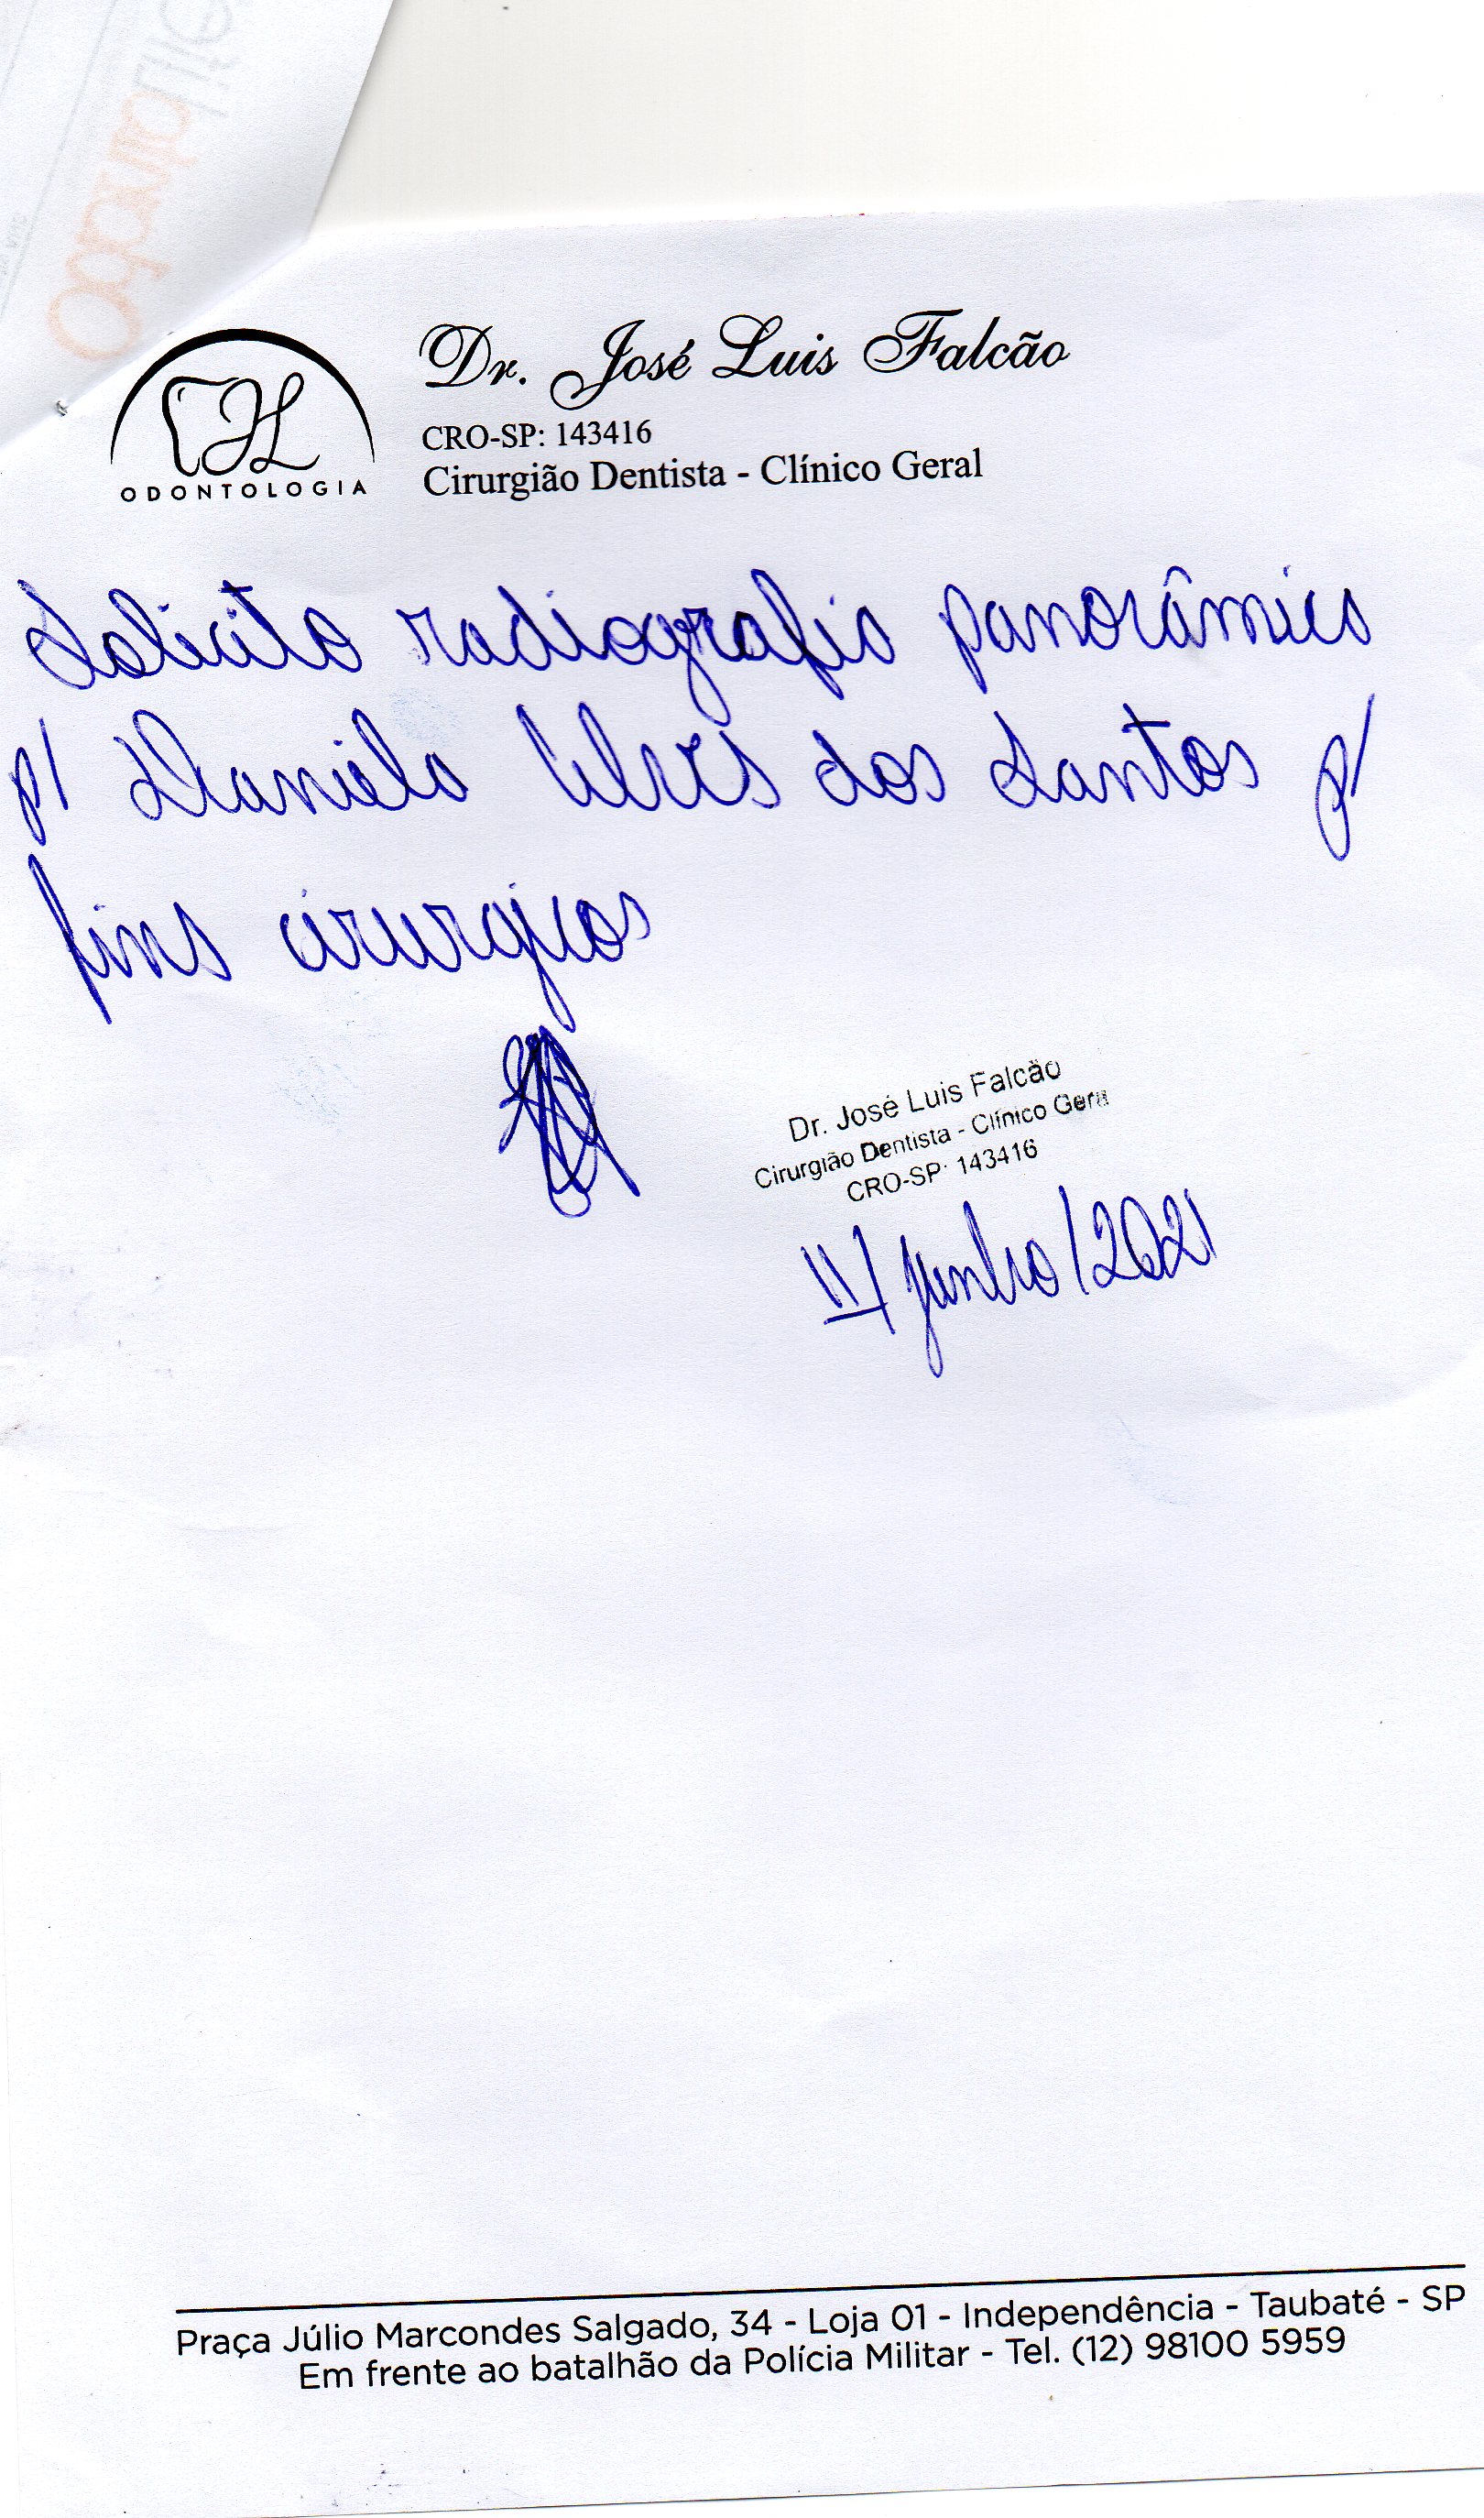 Dr. José Luis Falcão
CRO-SP: 143416
Cirurgião Dentista - Clínico Geral
ODONTOLOGIA
Solicito radiografia panorâmica
p/ Daniela Alves dos Santos p/
fins cirurgicos
Dr. José Luis Falcão
Cirurgião Dentista - Clínico Geral
CRO-SP: 143416
11/junho/2021
Praça Júlio Marcondes Salgado, 34 - Loja 01 - Independência - Taubaté - SP
Em frente ao batalhão da Polícia Militar - Tel. (12) 98100 5959